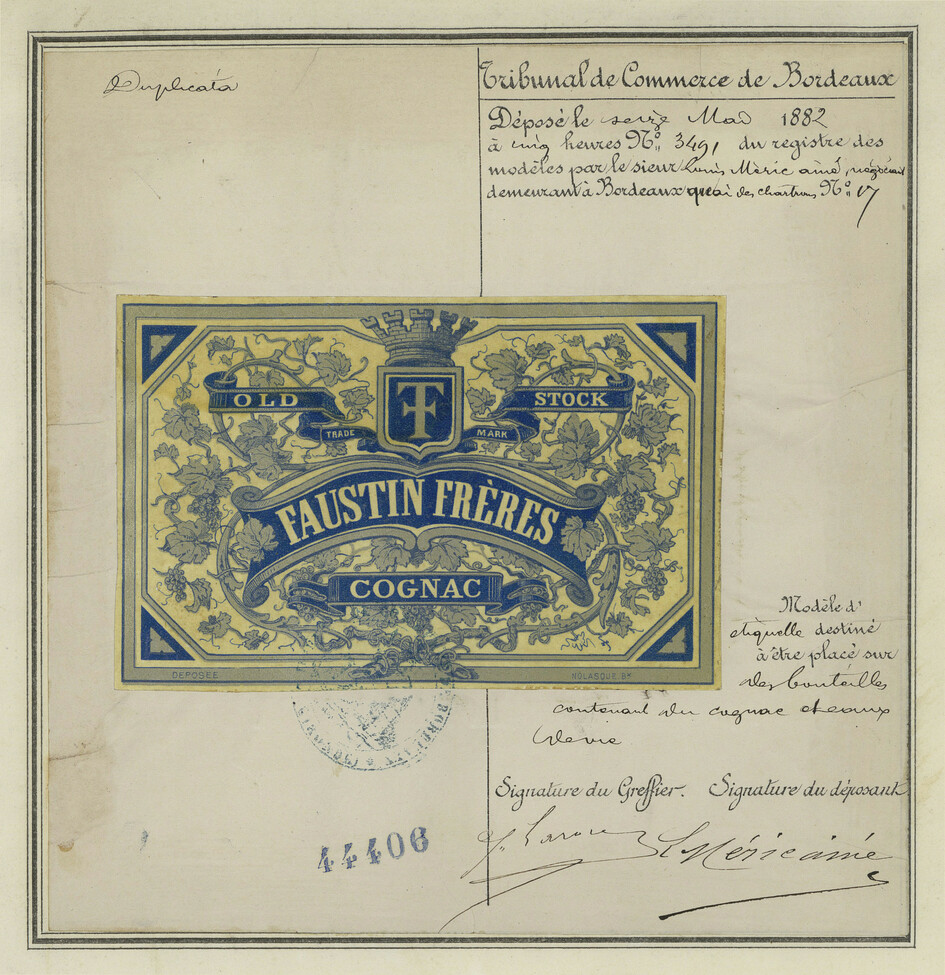 Duplicata
Tribunal de Commerce de Bordeaux
Déposé le seize Mai 1882
à cinq heures No. 3491 du registre des
modèles par le sieur Louis Méric ainé, négociant
demeurant à Bordeaux quai des chartrons No. 17
OLD
STOCK
TRADE
MARK
FAUSTIN FRÈRES
COGNAC
DEPOSÉE
NOLASQUE Bx
Modèle d'
etiquette destiné
à être placé sur
des bouteilles
contenant du cognac et eaux
de vie
BORDEAUX
Signature du Greffier. Signature du déposant
L Méric ainé
44406